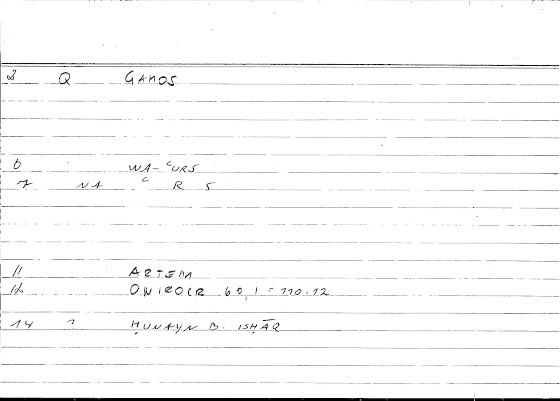 8 Q GAMOS
6 WA-ʿURS
7 NA ʿ R S
11 ARTEM
12 ONIROCR 60,1 = 110.12
14 ? ḤUNAYN B. ISḤĀQ